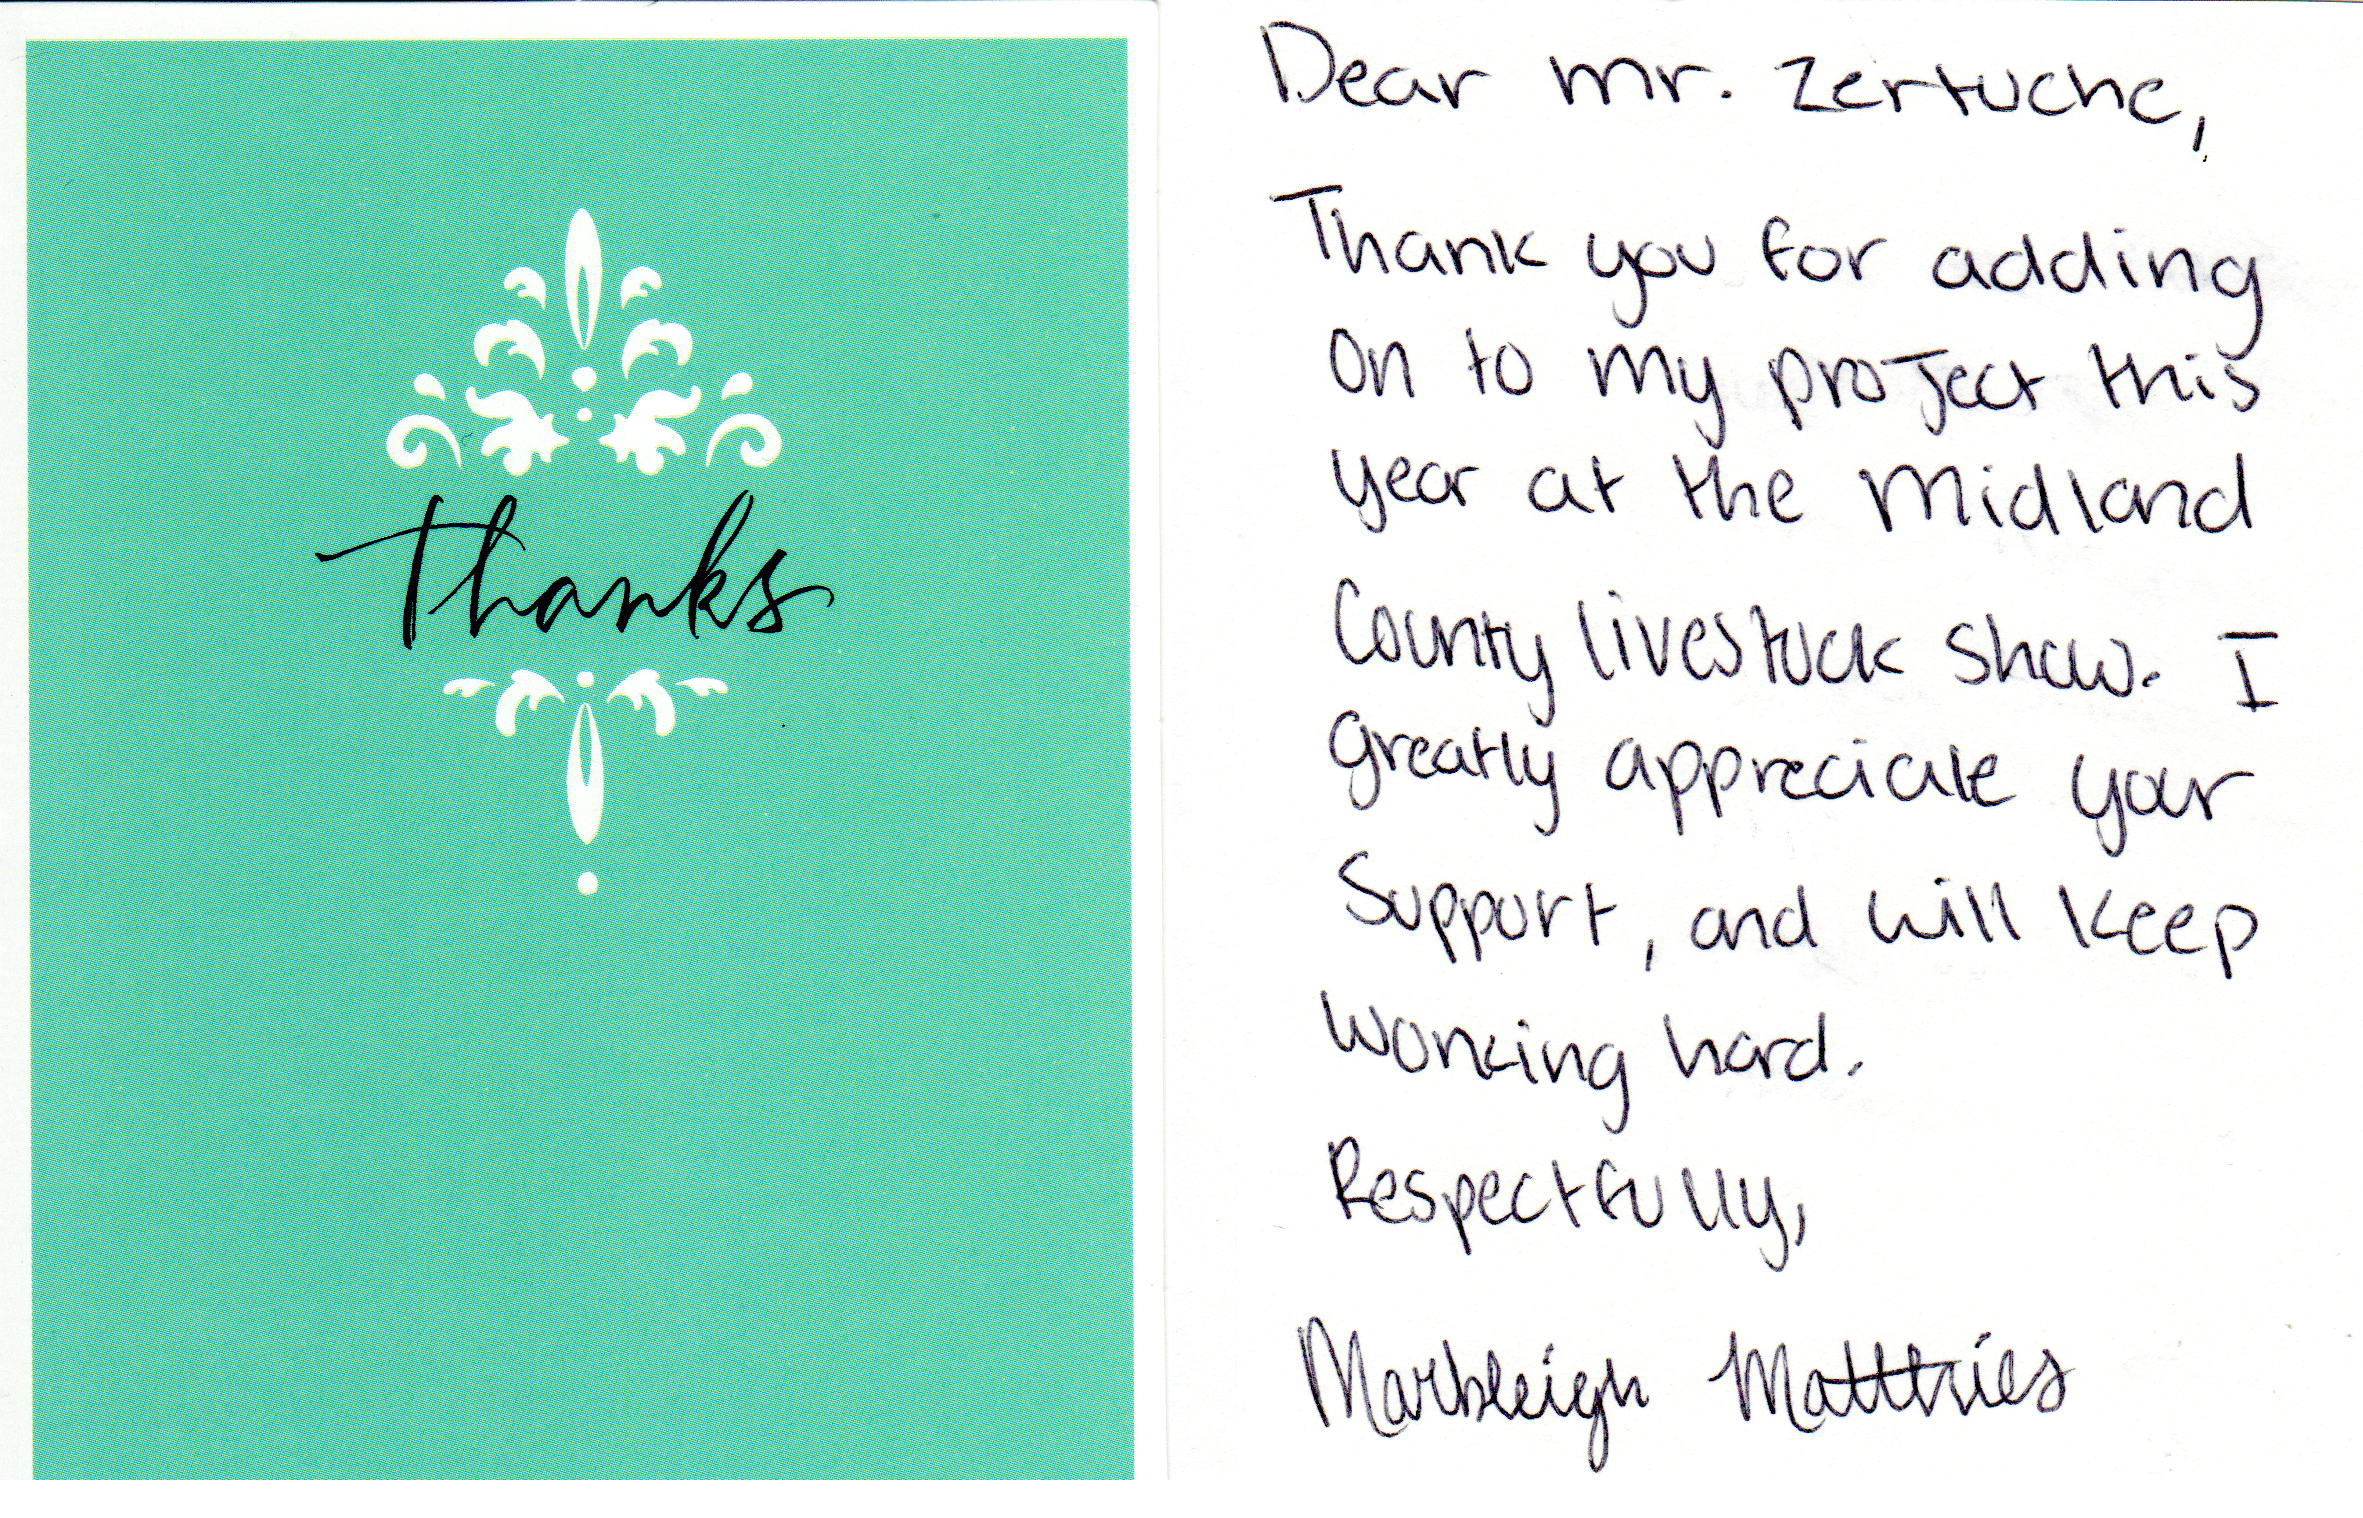 Thanks
Dear Mr. Zertuche,
Thank you for adding
on to my project this
year at the Midland
County livestock show. I
greatly appreciate your
Support, and will keep
working hard.
Respectfully,
Marbleigh Matthies